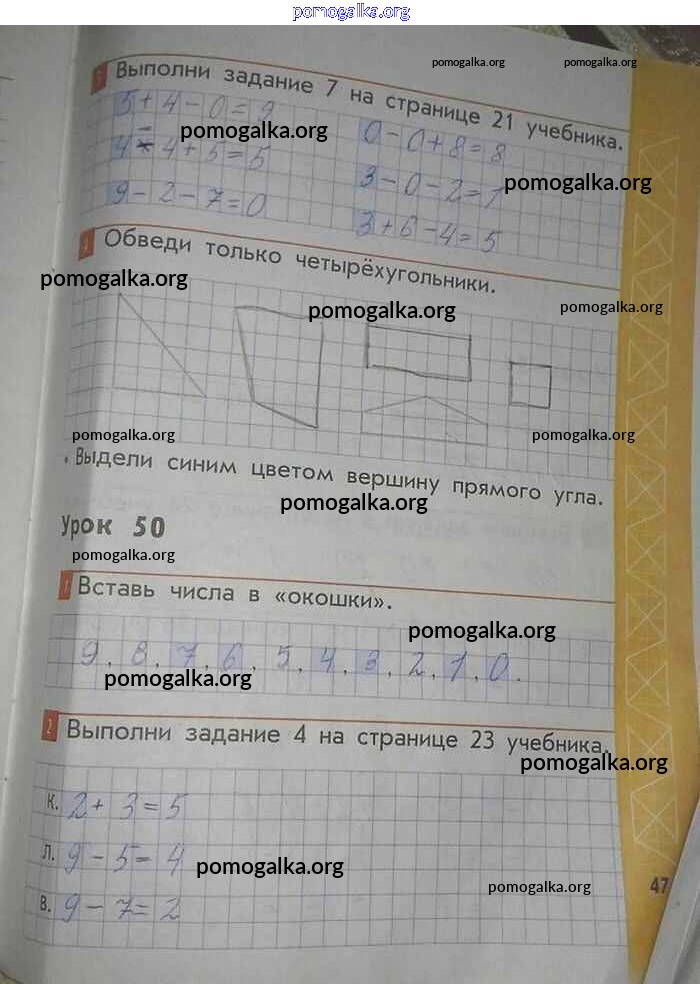 pomogalka.org
pomogalka.org pomogalka.org
Выполни задание 7 на странице 21 учебника.
5 + 4 - 0 = 9
pomogalka.org
0 - 0 + 8 = 8
4 - 4 + 5 = 5
3 - 0 - 2 = 1
pomogalka.org
9 - 2 - 7 = 0
3 + 6 - 4 = 5
Обведи только четырёхугольники.
pomogalka.org
pomogalka.org
pomogalka.org
pomogalka.org
pomogalka.org
Выдели синим цветом вершину прямого угла.
pomogalka.org
Урок 50
pomogalka.org
1 Вставь числа в «окошки».
pomogalka.org
9, 8, 7, 6, 5, 4, 3, 2, 1, 0.
pomogalka.org
2 Выполни задание 4 на странице 23 учебника.
pomogalka.org
К. 2 + 3 = 5
Л. 9 - 5 = 4
pomogalka.org
pomogalka.org
47
В. 9 - 7 = 2